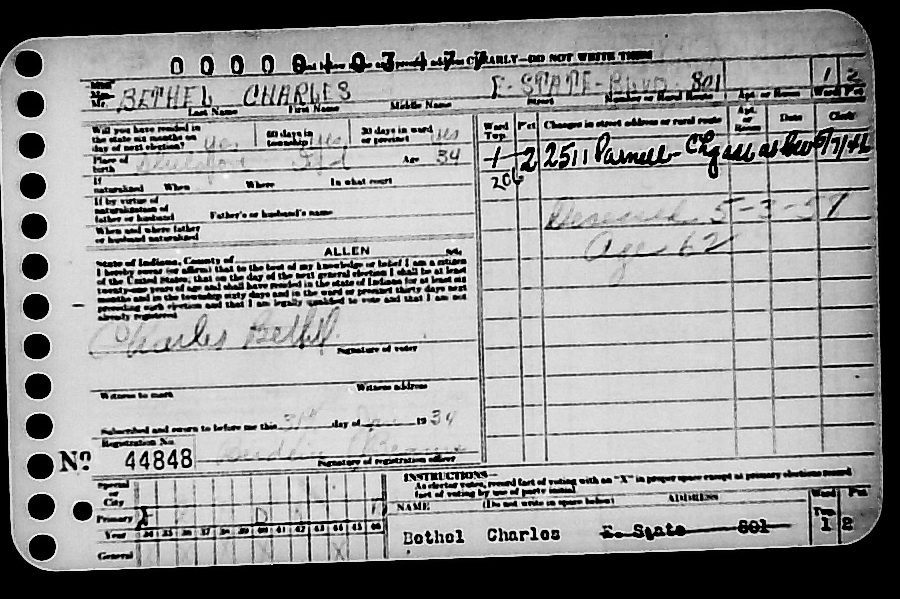 0 0 0 0 0 1 0 3 1 7 7
CLEARLY—DO NOT WRITE THIS
Mr. BETHEL CHARLES E. STATE BLVD 801 1 2
Last Name First Name Middle Name Street Number or Rural Route Apt. or Room Ward Pct
Will you have resided in the state six months on day of next election? yes 60 days in township? yes 30 days in ward or precinct yes
Ward Twp. Pct Changes in street address or rural route Apt. or Room Date Clerk
Place of birth Ind Age 34
1 2 2511 Parnell
206
If naturalized When Where In what court
If by virtue of naturalization of father or husband Father's or husband's name
Deceased 5-3-57
When and where father or husband naturalized
Age 62
State of Indiana, County of ALLEN SS.
I hereby swear (or affirm) that to the best of my knowledge or belief I am a citizen
of the United States; that on the day of the next general election I shall be at least
twenty-one years of age and shall have resided in the state of Indiana for at least six
months and in the township sixty days and in the ward or precinct thirty days next
preceding such election and that I am legally qualified to vote and that I am not
already registered
Charles Bethel
Signature of voter
Witness to mark Witness address
Subscribed and sworn to before me this 31st day of Jan 1934
Registration No.
Nº 44848
Signature of registration officer
INSTRUCTIONS—
As elector votes, record fact of voting with an "X" in proper space except at primary elections record
fact of voting by use of party initial
Special or City
Primary
Year 34 35 36 37 38 39 40 41 42 43 44 45 46
General
NAME (Do not write in space below) ADDRESS Ward Twp. Pct
Bethel Charles E. State 801 1 2